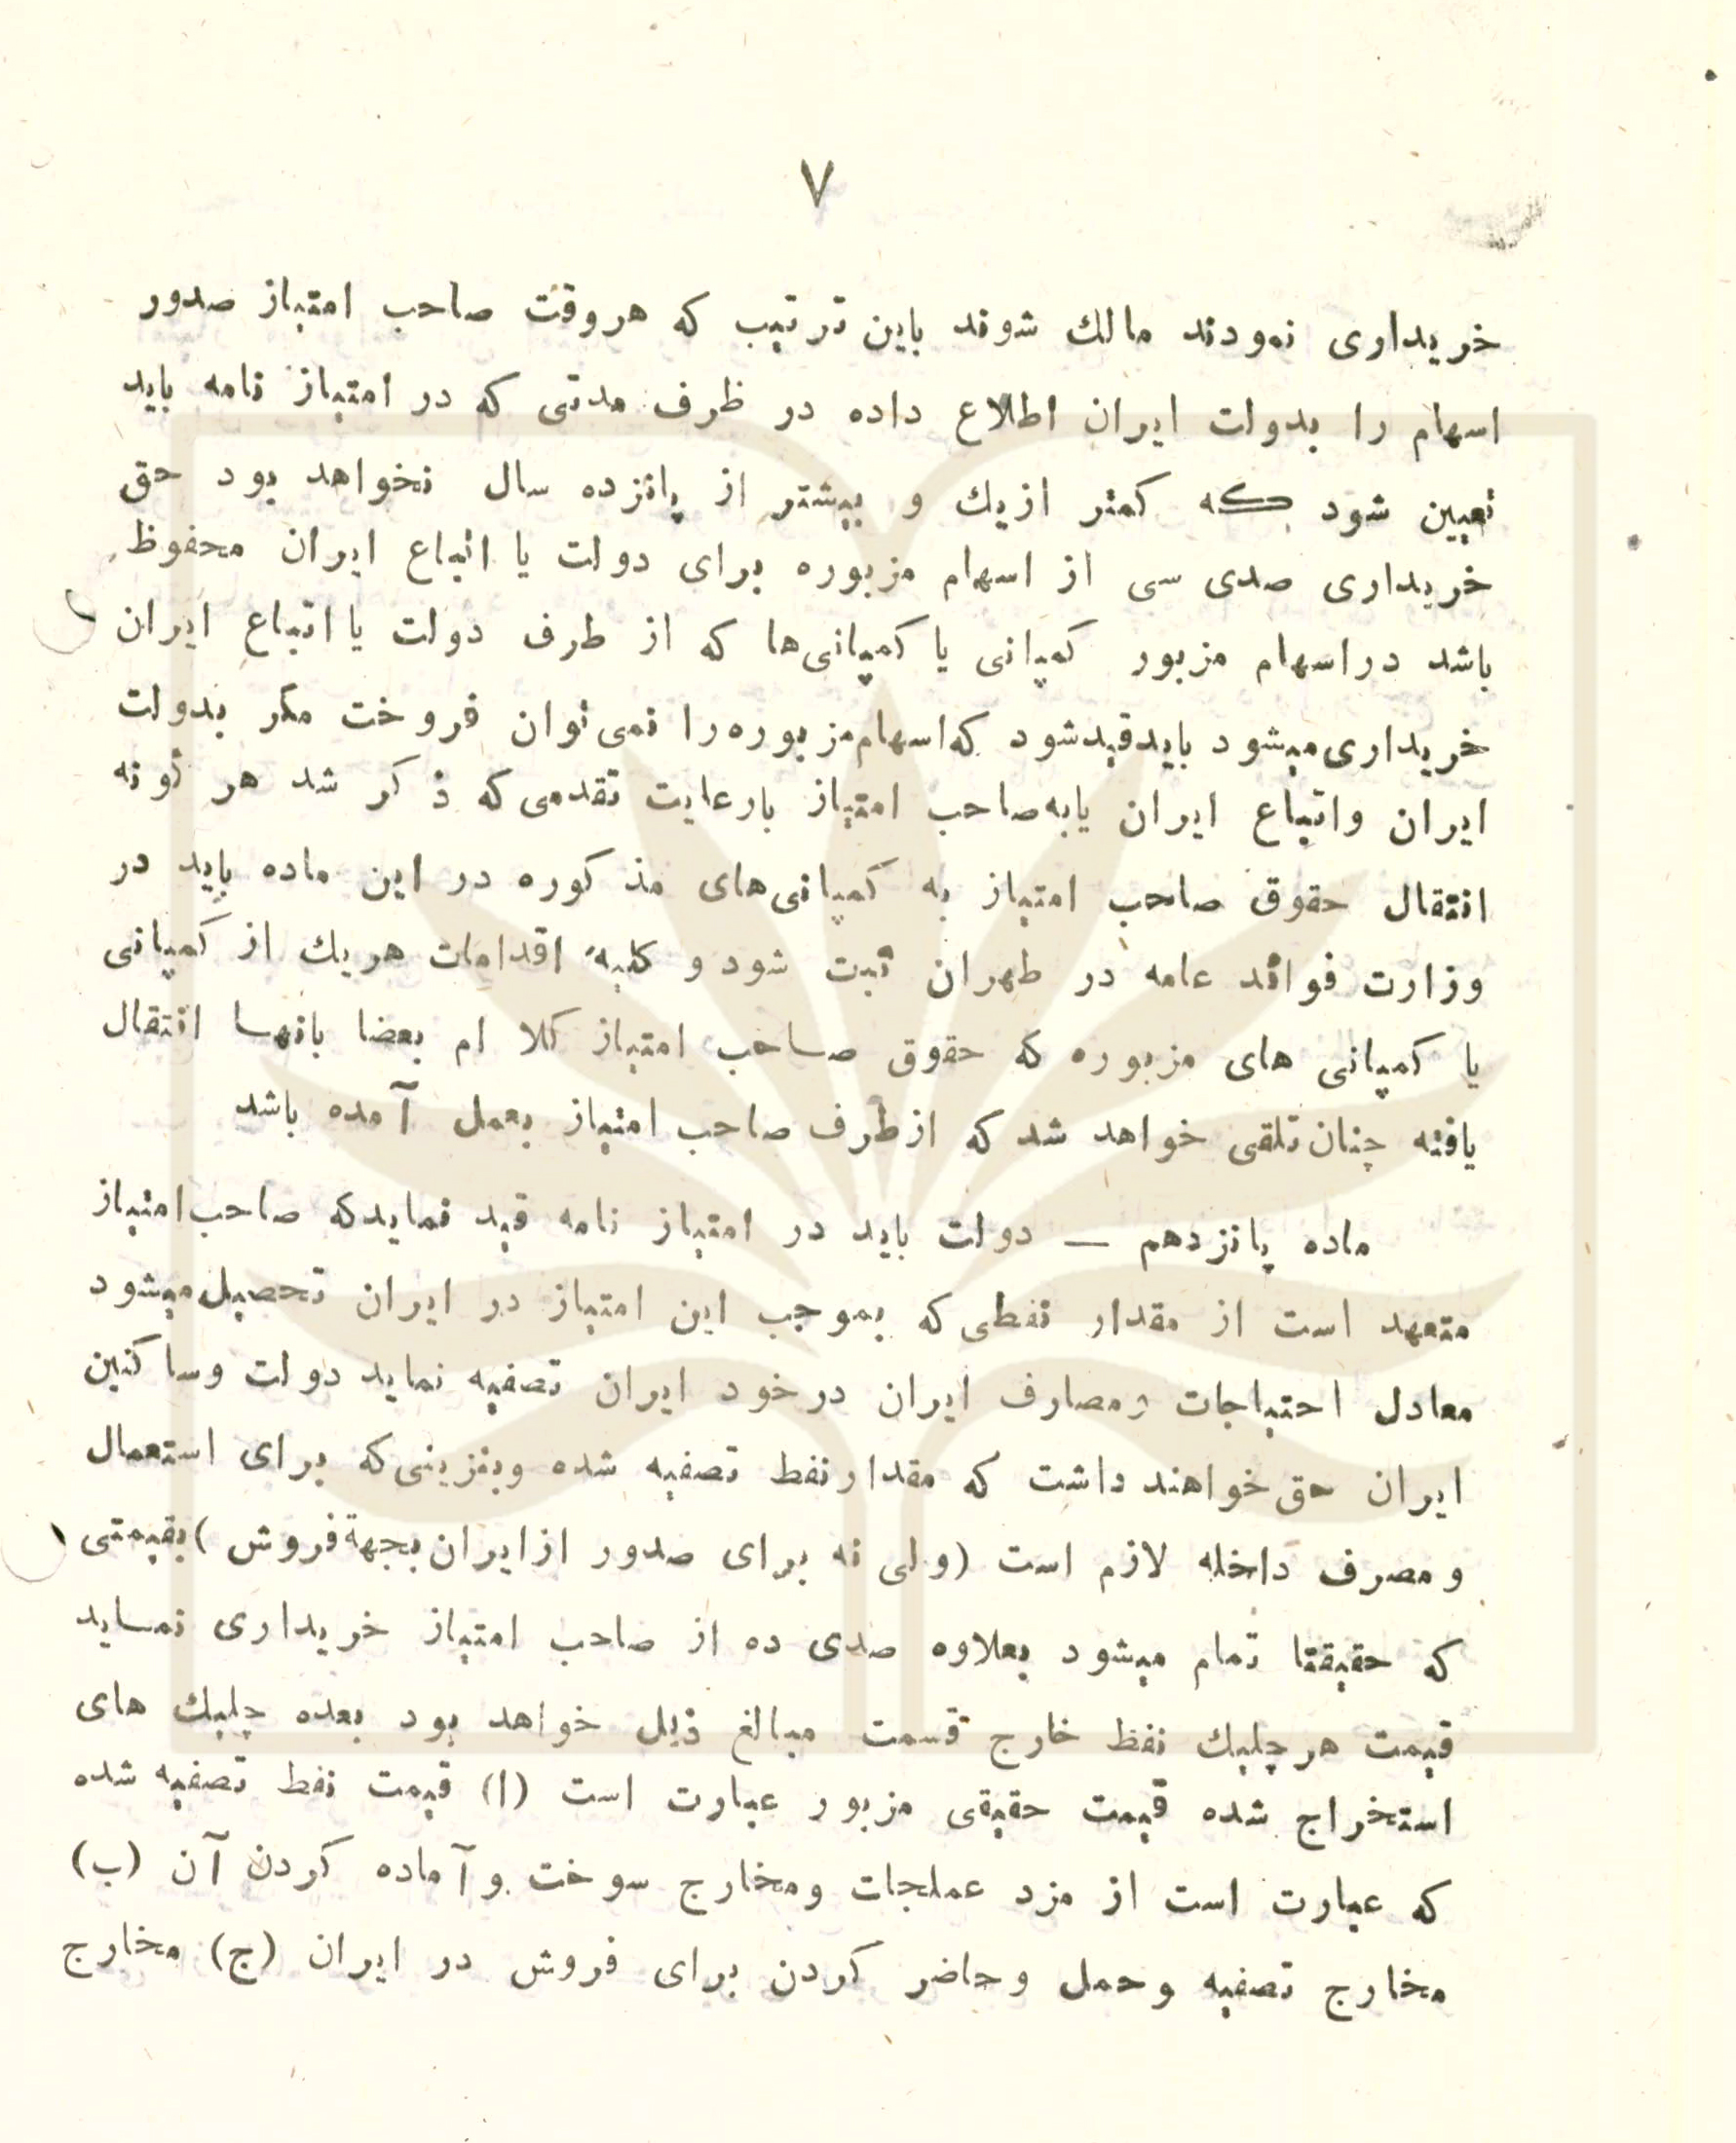 ۷
خریداری نمودند مالك شوند باین ترتیب که هروقت صاحب امتیاز صدور
اسهام را بدولت ایران اطلاع داده در ظرف مدتی که در امتیاز نامه باید
تعیین شود که کمتر ازیك و بیشتر از پانزده سال نخواهد بود حق
خریداری صدی سی از اسهام مزبوره برای دولت یا اتباع ایران محفوظ
باشد دراسهام مزبور کمپانی یا کمپانی‌ها که از طرف دولت یا اتباع ایران
خریداری میشود باید قید شود که اسهام مزبوره را نمی‌توان فروخت مگر بدولت
ایران واتباع ایران یابه صاحب امتیاز بارعایت تقدمی که ذکر شد هر گونه
انتقال حقوق صاحب امتیاز به کمپانی‌های مذکوره در این ماده باید در
وزارت فوائد عامه در طهران ثبت شود و کلیهٔ اقدامات هریك از کمپانی
یا کمپانی های مزبوره که حقوق صاحب امتیاز کلا ام بعضا بانها انتقال
یافته چنان تلقی خواهد شد که ازطرف صاحب امتیاز بعمل آمده باشد
ماده پانزدهم — دولت باید در امتیاز نامه قید نماید که صاحب امتیاز
متعهد است از مقدار نفطی که بموجب این امتیاز در ایران تحصیل میشود
معادل احتیاجات ومصارف ایران درخود ایران تصفیه نماید دولت وساکنین
ایران حق خواهند داشت که مقدار نفط تصفیه شده وبنزینی که برای استعمال
ومصرف داخله لازم است (ولی نه برای صدور ازایران بجهة فروش) بقیمتی
که حقیقتا تمام میشود بعلاوه صدی ده از صاحب امتیاز خریداری نماید
قیمت هرچلیك نفظ خارج قسمت مبالغ ذیل خواهد بود بعده چلیك های
استخراج شده قیمت حقیقی مزبور عبارت است (ا) قیمت نفط تصفیه شده
که عبارت است از مزد عملجات ومخارج سوخت وآماده کردن آن (ب)
مخارج تصفیه وحمل وحاضر کردن برای فروش در ایران (ج) مخارج